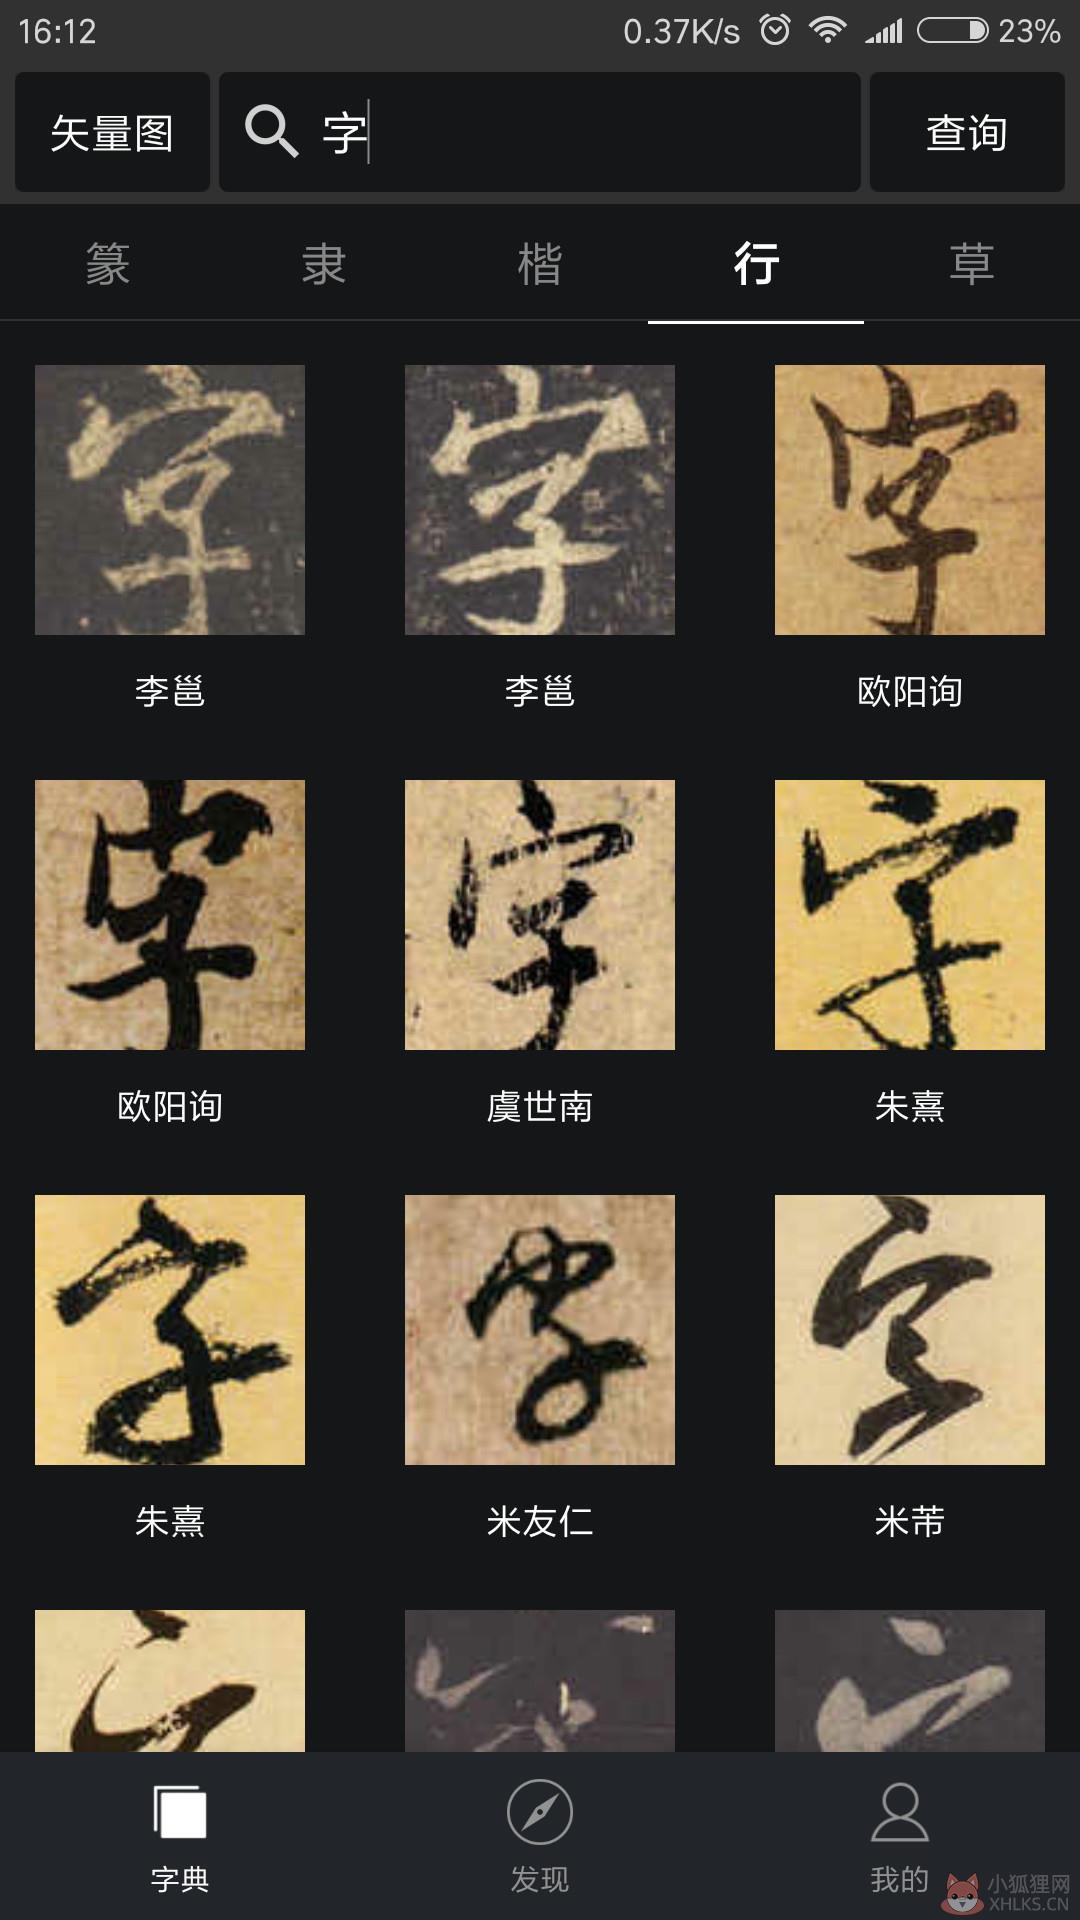 16:12 0.37K/s 23%
矢量图 字 查询
篆 隶 楷 行 草
字 字 字
李邕 李邕 欧阳询
字 字 字
欧阳询 虞世南 朱熹
字 字 字
朱熹 米友仁 米芾
字典 发现 我的
小狐狸网
XHLKS.CN